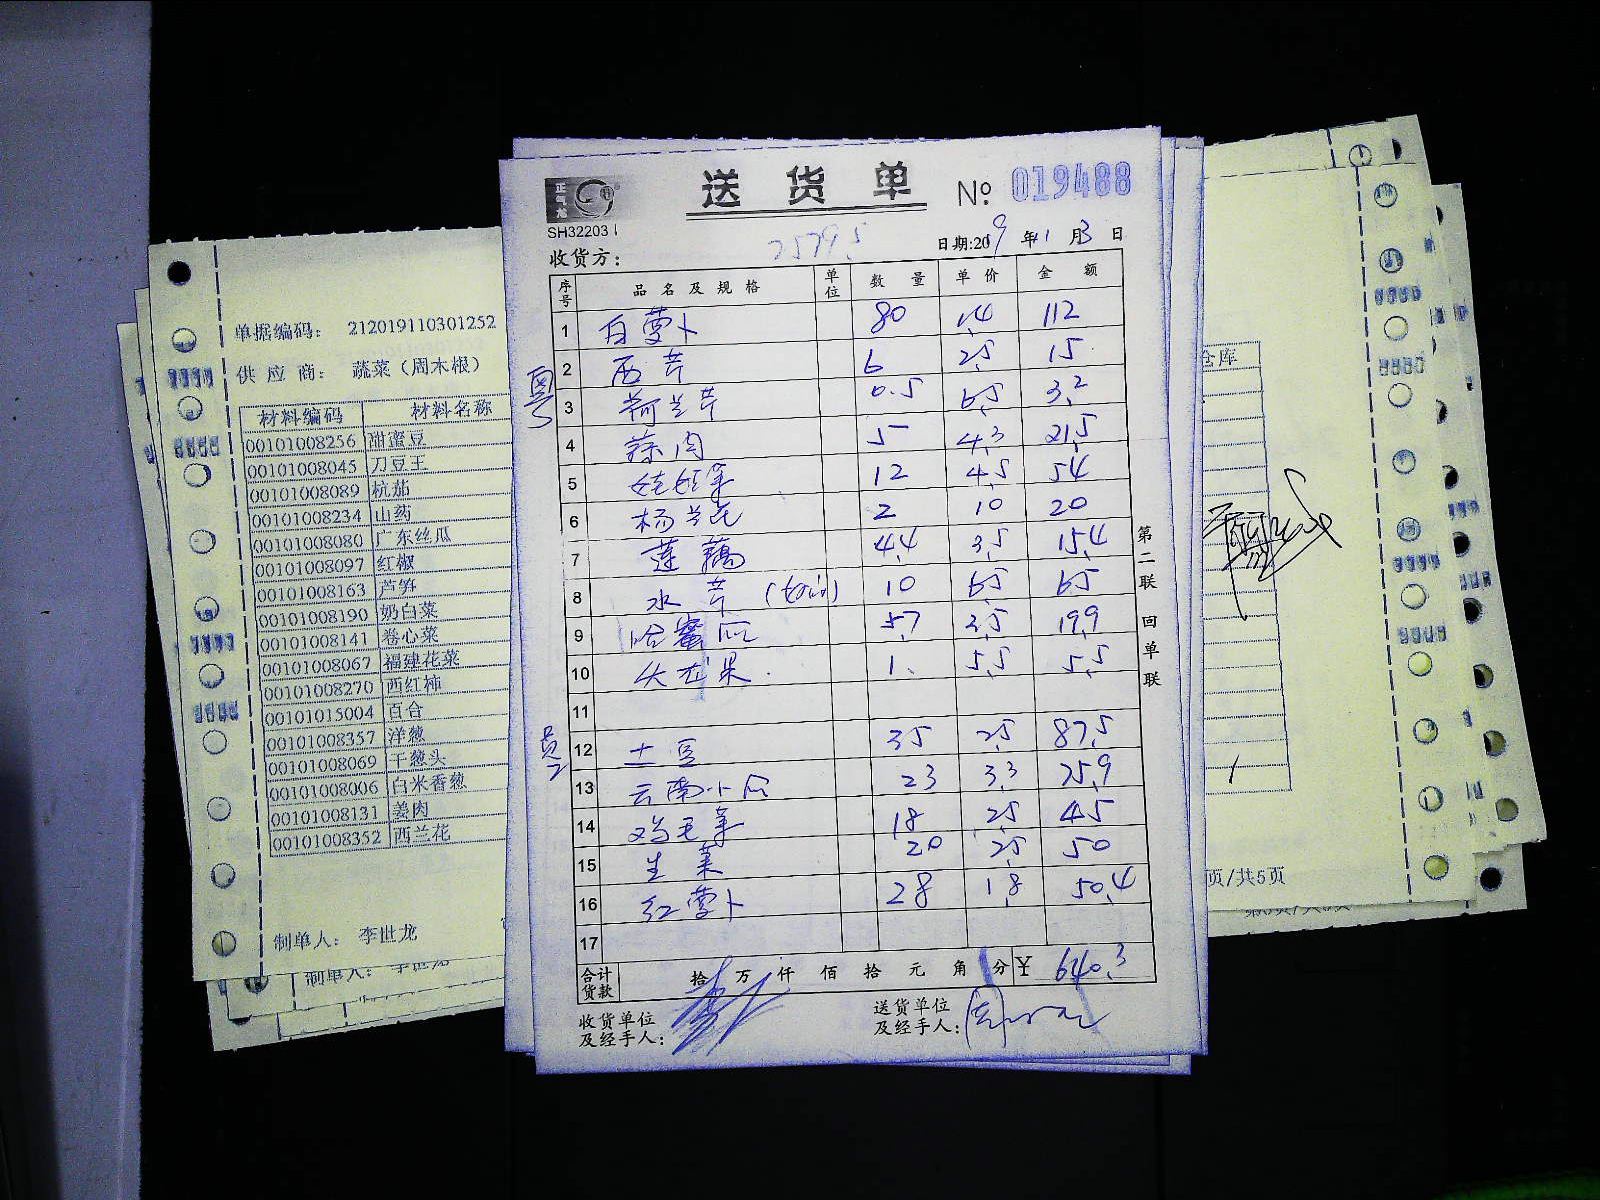 送货单
№ 019488
正气龙
SH32203
2579.5
日期:2019年11月3日
收货方：
序号 品名及规格 单位 数量 单价 金额
1 白萝卜 80 1.4 112
2 西芹 6 2.5 15
3 荷兰芹 0.5 6.5 3.2
4 蒜肉 5 4.3 21.5
5 娃娃菜 12 4.5 54
6 杨兰花 2 10 20
7 莲藕 4.4 3.5 15.4
8 水芹 10 6.5 65
9 哈蜜瓜 5.7 3.5 19.9
10 火龙果 1 5.5 5.5
11
12 土豆 35 2.5 87.5
13 云南小瓜 23 3.3 75.9
14 鸡毛菜 18 2.5 45
15 生菜 20 2.5 50
16 红萝卜 28 1.8 50.4
17
合计货款 拾 万 仟 佰 拾 元 角 分 ¥ 640.3
收货单位及经手人：
送货单位及经手人：
第二联 回单联
单据编码： 212019110301252
供应商： 蔬菜（周木根）
材料编码 材料名称
00101008256 甜蜜豆
00101008045 刀豆王
00101008089 杭茄
00101008234 山药
00101008080 广东丝瓜
00101008097 红椒
00101008163 芦笋
00101008190 奶白菜
00101008141 卷心菜
00101008067 福建花菜
00101008270 西红柿
00101015004 百合
00101008357 洋葱
00101008069 干葱头
00101008006 白米香葱
00101008131 姜肉
00101008352 西兰花
制单人： 李世龙
制单人： 李世龙
仓库
页/共5页